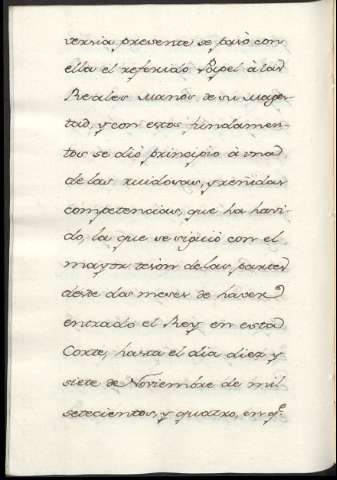 versia presente se pasó con
ella el referido Papel à las
Reales manos de su mages-
tad, y con estos fundamen-
tos se dió principio à una
de las ruidosas, y reñidas
competencias, que ha havi-
do, la que se siguió con el
mayor tesòn de las partes
desde dos meses de haver
entrado el Rey en esta
Corte, hasta el dia diez y
siete de Noviembre de mil
setecientos, y quatro, en q.e